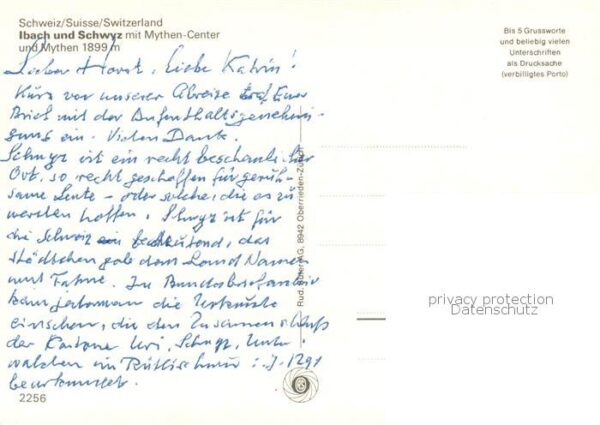 Schweiz/Suisse/Switzerland
Ibach und Schwyz mit Mythen-Center
und Mythen 1899 m
Lieber Horst, liebe Katrin!
Kurz vor unserer Abreise traf Euer
Brief mit der Aufenthaltsgenehmi-
gung ein. Vielen Dank.
Schwyz ist ein recht beschaulicher
Ort, so recht geschaffen für geruh-
same Leute - oder solche, die es zu
werden hoffen. Schwyz ist für
die Schweiz bedeutend, das
Städtchen gab dem Land Namen
und Fahne. Im Bundesbriefarchiv
kann jedermann die Urkunde
einsehen, die den Zusammenschluß
der Kantone Uri, Schwyz, Unter-
walden im Rütlischwur i.J. 1291
beurkundet.
2256
Bis 5 Grussworte
und beliebig vielen
Unterschriften
als Drucksache
(verbilligtes Porto)
Rud. Suter AG, 8942 Oberrieden-Zürich
privacy protection
Datenschutz